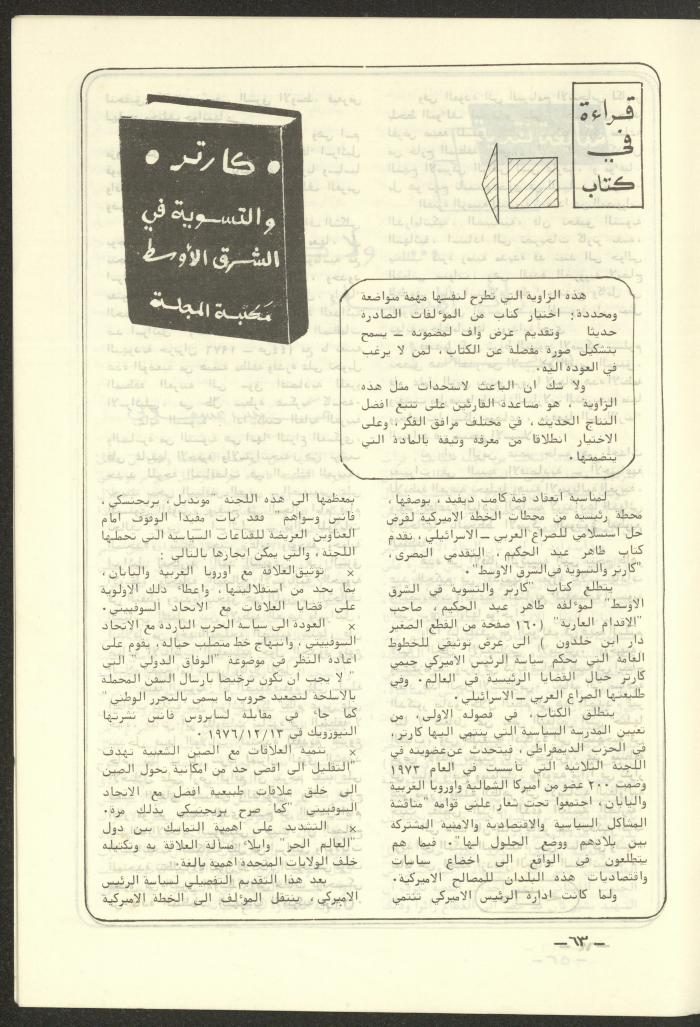 قراءة
في
كتاب
• كارتر •
والتسوية في
الشرق الأوسط
مكتبة المجلة
هذه الزاوية التي تطرح لنفسها مهمة متواضعة
ومحددة: اختيار كتاب من المؤلفات الصادرة
حديثا وتقديم عرض واف لمضمونه ــ يسمح
بتشكيل صورة مفصلة عن الكتاب، لمن لا يرغب
في العودة اليه.
ولا شك ان الباعث لاستحداث مثل هذه
الزاوية ، هو مساعدة القارئين على تتبع افضل
النتاج الحديث، في مختلف مرافق الفكر، وعلى
الاختيار انطلاقا من معرفة وثيقة بالمادة التي
يتضمنها.
لمناسبة انعقاد قمة كامب ديفيد ، بوصفها ،
محطة رئيسية من محطات الخطة الاميركية لفرض
حل استسلامي للصراع العربي ــ الاسرائيلي ، نقدم
كتاب طاهر عبد الحكيم، التقدمي المصري،
"كارتر والتسوية في الشرق الاوسط".
يتطلع كتاب "كارتر والتسوية في الشرق
الاوسط" لمؤلفه طاهر عبد الحكيم، صاحب
"الاقدام العارية" (١٦٠ صفحة من القطع الصغير
دار ابن خلدون ) الى عرض توثيقي للخطوط
العامة التي تحكم سياسة الرئيس الاميركي جيمي
كارتر حيال القضايا الرئيسية في العالم. وفي
طليعتها الصراع العربي ــ الاسرائيلي.
ينطلق الكتاب، في فصوله الاولى، من
تعيين المدرسة السياسية التي ينتمي اليها كارتر،
في الحزب الديمقراطي، فيتحدث عن عضويته في
اللجنة الثلاثية التي تأسست في العام ١٩٧٣
وضمت ٢٠٠ عضو من اميركا الشمالية واوروبا الغربية
واليابان، اجتمعوا تحت شعار علني قوامه "مناقشة
المشاكل السياسية والاقتصادية والامنية المشتركة
بين بلادهم ووضع الحلول لها". فيما هم
يتطلعون في الواقع الى اخضاع سياسات
واقتصاديات هذه البلدان للمصالح الاميركية.
ولما كانت ادارة الرئيس الاميركي تنتمي
بمعظمها الى هذه اللجنة "مونديل ، بريجنسكي ،
فانس وسواهم" فقد بات مفيدا الوقوف امام
العناوين العريضة للقناعات السياسية التي تحملها
اللجنة ، والتي يمكن ايجازها بالتالي :
× توثيق العلاقة مع اوروبا الغربية واليابان،
بما يحد من استقلاليتها، واعطاء ذلك الاولوية
على قضايا العلاقات مع الاتحاد السوفييتي.
× العودة الى سياسة الحرب الباردة مع الاتحاد
السوفييتي، وانتهاج خط متصلب حياله، يقوم على
اعادة النظر في موضوعة "الوفاق الدولي" التي
" لا يجب ان تكون ترخيصا بارسال السفن المحملة
بالاسلحة لتصعيد حروب ما يسمى بالتحرر الوطني"
كما جاء في مقابلة لسايروس فانس نشرتها
النيوزويك في ١٩٧٦/١٢/١٣ .
× تنمية العلاقات مع الصين الشعبية بهدف
"التقليل الى اقصى حد من امكانية تحول الصين
الى خلق علاقات طبيعية افضل مع الاتحاد
السوفييتي "كما صرح بريجنسكي بذلك مرة.
× التشديد على اهمية التماسك بين دول
"العالم الحر" وايلاء مسألة العلاقة به وتكتيله
خلف الولايات المتحدة اهمية بالغة.
بعد هذا التقديم التفصيلي لسياسة الرئيس
الاميركي، ينتقل المؤلف الى الخطة الاميركية
ــ ٦٣ ــ